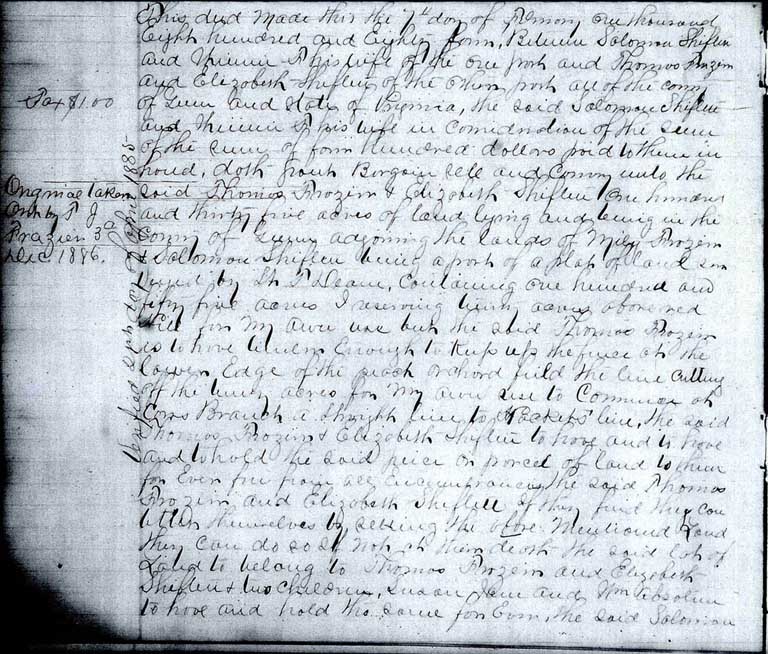 This deed made this the 7th day of                one thousand
Eight hundred and Eighty four, Between Solomon Shiflett
and              his wife of the one part and Thomas Frazier
and Elizabeth Shiflett of the other part all of the County
of           and State of Virginia, the said Solomon Shiflett
and              his wife in consideration of the sum
of the sum of four hundred dollars paid to them in
hand, doth grant Bargain sell and Convey unto the
said Thomas Frazier & Elizabeth Shiflett One hundred
and thirty five acres of land lying and being in the
County of           adjoining the lands of           Frazier
& Solomon Shiflett being a part of a plat of land
          by                     , Containing one hundred and
fifty five acres I reserving twenty acres above
          for my own use but the said Thomas Frazier
is to have timber Enough to Keep up the fence at the
lower Edge of the peach orchard field the line cutting
off the twenty acres for my own use to Commence at
          Branch a straight line to           line, the said
Thomas Frazier & Elizabeth Shiflett to have and to have
and to hold the said peice or parcel of land to them
for Ever free from all Encumbrances, the said Thomas
Frazier and Elizabeth Shiflett if they find they can
better themselves by selling the above Mentioned Land
they can do so if not at their death the said lot of
Land to belong to Thomas Frazier and Elizabeth
Shiflett           children, Susan           and Wm
to have and hold the same for Ever, the said Solomon
Tax $1.00
Original taken
          T J
Frazier 3d
Dec 1886.
Verified                day of April 1885